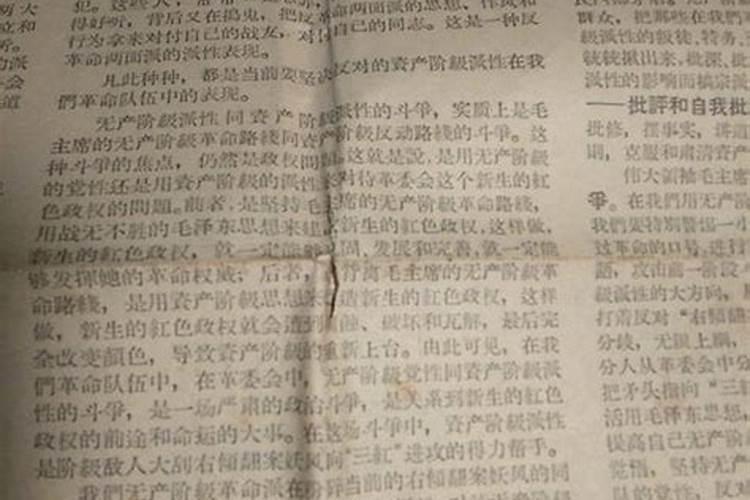 得好听，背后又在捣鬼，把反革命两面派的思想、作风和
行为拿来对付自己的战友，对付自己的同志。这是一种反
革命两面派的派性表现。
凡此种种，都是当前要坚决反对的資产阶級派性在我
們革命队伍中的表现。
无产阶級派性同資产阶級派性的斗爭，实质上是毛
主席的无产阶級革命路綫同資产阶級反动路綫的斗爭。这
种斗爭的焦点，仍然是政权問題。这就是說，是用无产阶級
的党性还是用資产阶級的派性来对待革委会这个新生的紅
色政权的問題。前者，是坚持毛主席的无产阶級革命路綫，
用战无不胜的毛泽东思想来建設新生的紅色政权，这样做，
新生的紅色政权，就一定能够巩固、发展和完善，就一定能
够发揮她的革命权威；后者，背离毛主席的无产阶級革
命路綫，是用資产阶級思想来改造新生的紅色政权，这样
做，新生的紅色政权就会遭到腐蝕、破坏和瓦解，最后完
全改变顏色，导致資产阶級的重新上台。由此可见，在我
們革命队伍中，在革委会中，无产阶級党性同資产阶級派
性的斗爭，是一场严肃的政治斗爭，是关系到新生的紅色
政权的前途和命运的大事。在这场斗爭中，資产阶級派性
是阶級敌人大刮右傾翻案妖风向"三紅"进攻的得力帮手。
我們无产阶級革命派在粉碎当前的右傾翻案妖风的同
群众，把那些在我們
級派性的叛徒、特务、
統統揪出来，批深、批
派性的影响而搞宗派
——批評和自我批
批修，摆事实，讲道
則，克服和肃清資产
伟大領袖毛主席
爭。在我們用无产
我們要特别警惕一小
过革命的口号，进行
語，攻击前一阶段
級派性的大方向，
打着反对"右傾翻
分歧，无限上綱，
分人从革委会中分
把矛头指向"三
活用毛泽东思想
提高自己无产阶
覚悟，坚持无产